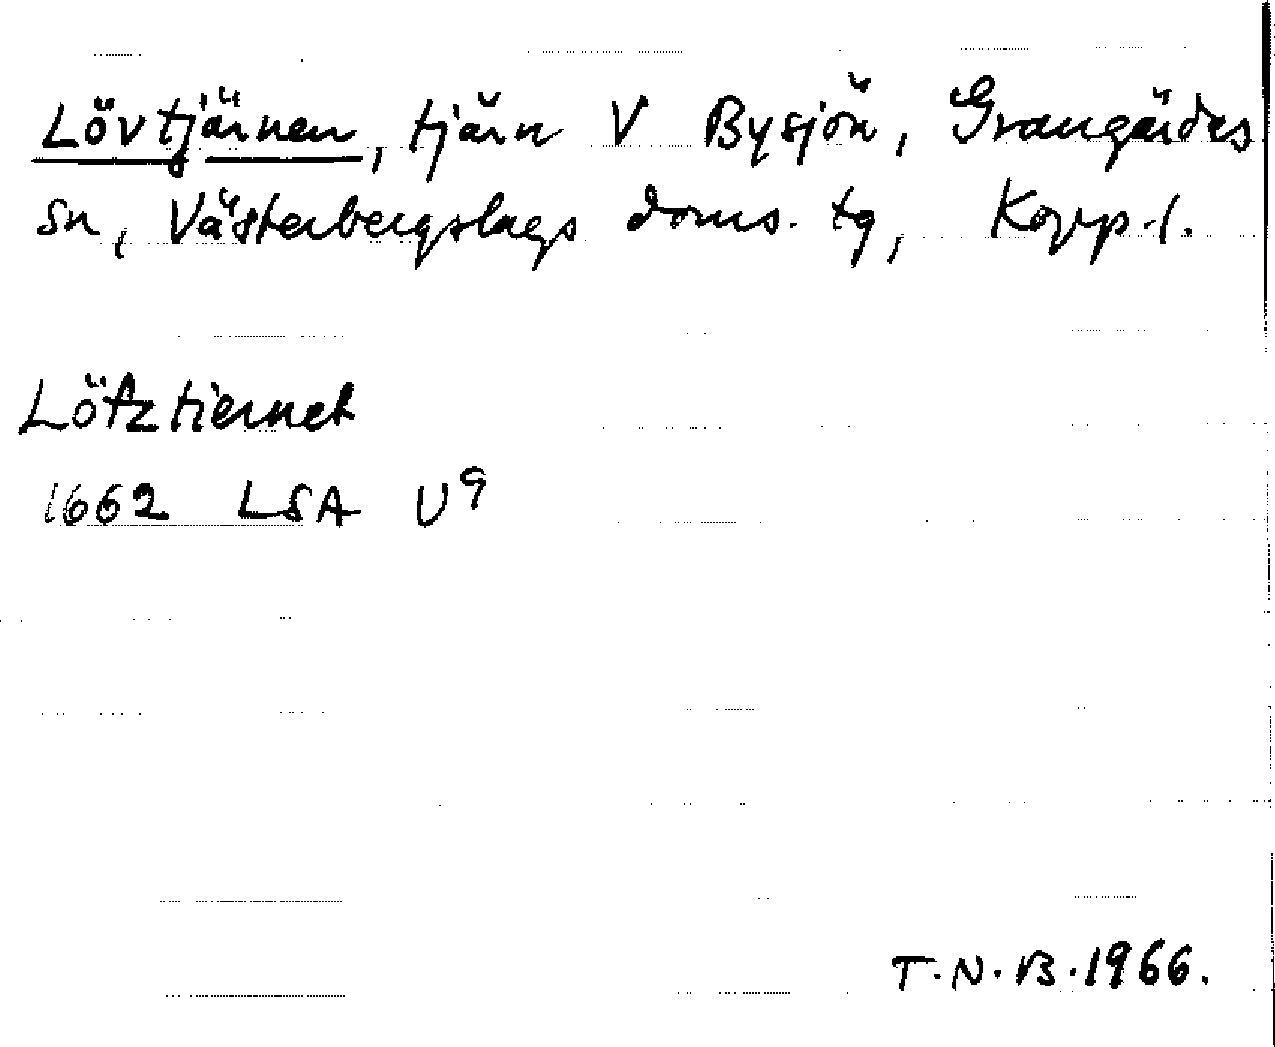 Lövtjärnen, tjärn V Bysjön, Grangärdes
sn, Västerbergslags doms. tg, Kopp.l.
Lötztiernet
1662 LSA U9
T.N.B.1966.